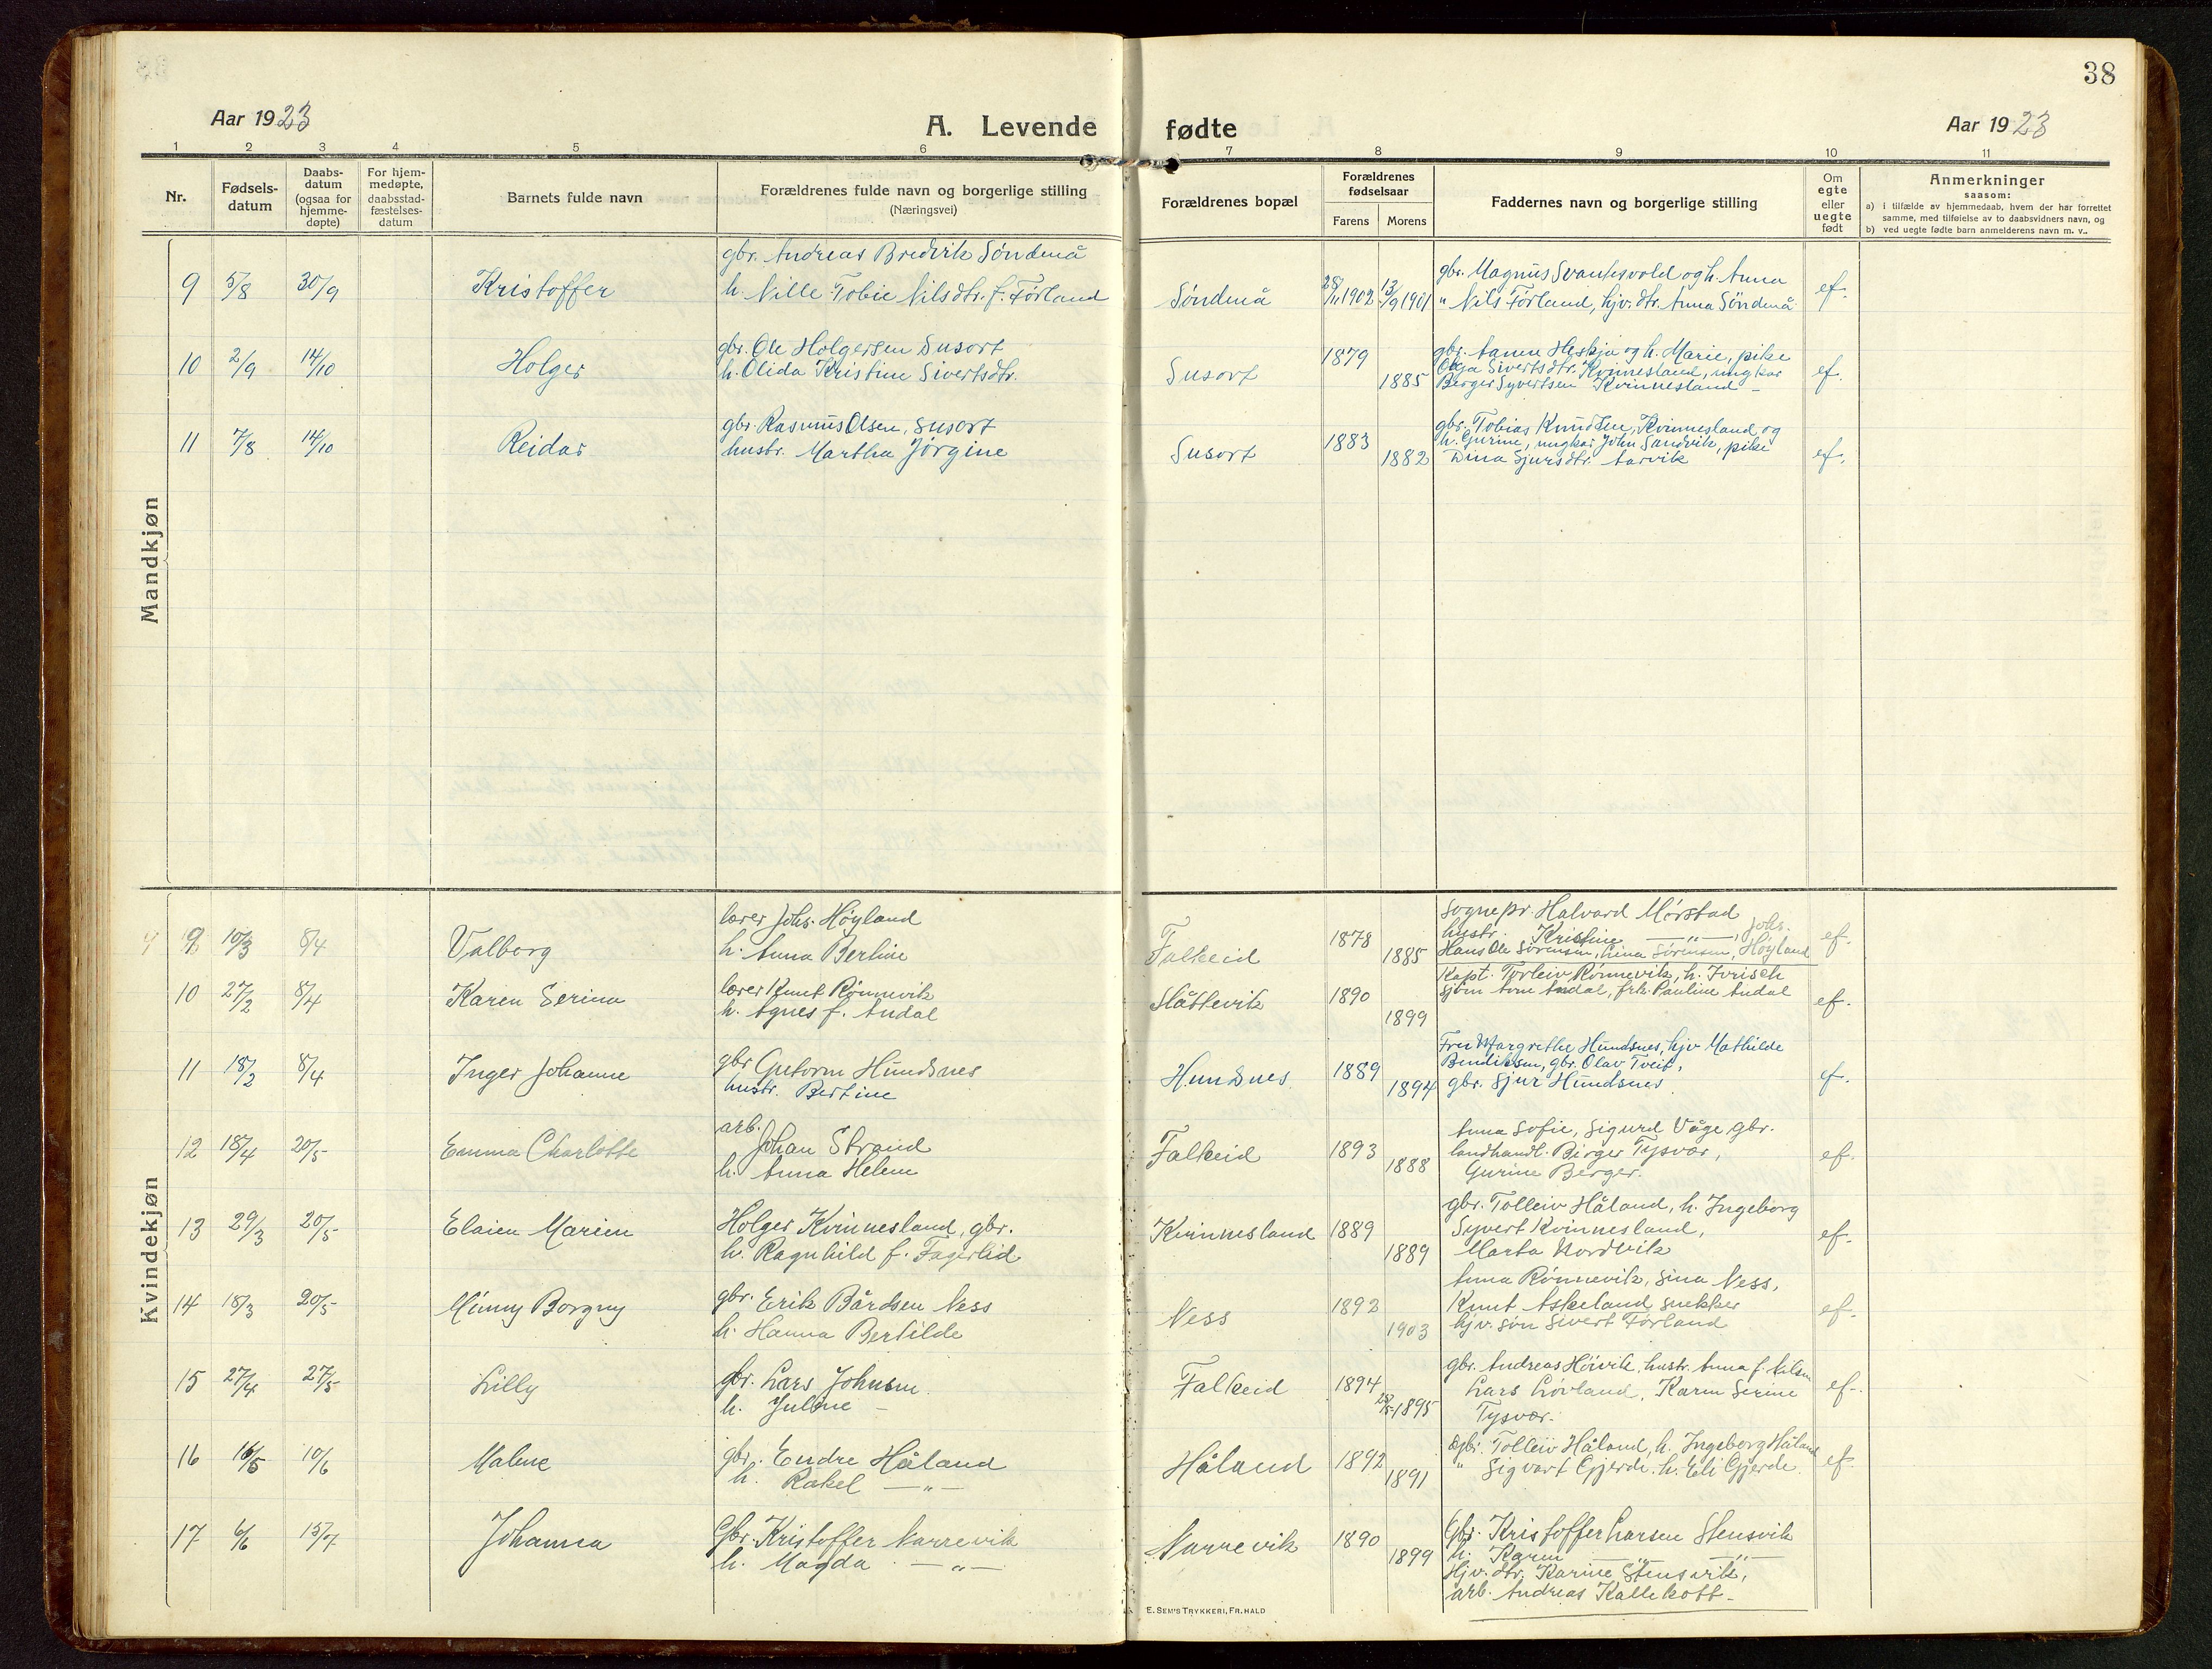 38
Aar 1923
A. Levende fødte
Aar 1923
1 2 3 4 5 6 7 8 9 10 11
Nr.
Fødsels-
datum
Daabs-
datum
(ogsaa for
hjemme-
døpte)
For hjem-
medøpte,
daabsstad-
fæstelses-
datum
Barnets fulde navn
Forældrenes fulde navn og borgerlige stilling
(Næringsvei)
Forældrenes bopæl
Forældrenes
fødselsaar
Farens Morens
Faddernes navn og borgerlige stilling
Om
egte
eller
uegte
født
Anmerkninger
saasom:
a) i tilfælde av hjemmedaab, hvem der har forrettet
samme, med tilføielse av to daabsvidners navn, og
b) ved uegte fødte barn anmelderens navn m. v..
Mandkjøn
9 5/8 30/9 Kristoffer
gbr. Andreas Bredvik Søndenå
h. Nille Tobie Nilsdtr. f. Førland
Søndenå 28/11 1902 13/9 1901
gbr. Magnus Svankvold og h. Anna
" Nils Førland, hjv. dtr. Anna Søndenå
ef.
10 2/9 14/10 Holger
gbr. Ole Holgersen Susort
h. Olida Kristine Sivertsdtr.
Susort 1879 1885
gbr. Aanen Heskja og h. Marie, pike
Olga Sivertsdtr. Kvinnesland, ungkar
Berger Syvertsen Kvinnesland
ef.
11 7/8 14/10 Reidar
gbr. Rasmus Olsen, Susort
hustr. Martha Jørgine
Susort 1883 1882
gbr. Tobias Knudsen, Kvinnesland og
h. Gurine, ungkar John Sandvik, pike
Dina Sjursdtr. Aarvik
ef.
Kvindekjøn
9 9 10/3 8/4 Valborg
lærer Johs. Høyland
h. Anna Bertine
Falkeid 1878 1885
Sognepr. Halvard Mørstad
hustr. Kristine —"—, Johs.
Hans Ole Sørensen, Lina Sørensen, Høyland
ef.
10 27/2 8/4 Karen Serina
lærer Knut Rønnevik
h. Agnes f. Andal
Slåttevik 1890 1899
Kapt. Torleiv Rønnevik, h.
sjøm Arne Andal, frk. Pauline Andal
ef.
11 18/2 8/4 Inger Johanne
gbr Gutorm Hundsnes
hustr. Bertine
Hundsnes 1889 1894
Fru Margrethe Hundsnes, hjv Mathilde
Bendiksen, gbr. Olav Tveit,
gbr. Sjur Hundsnes
ef.
12 18/4 20/5 Emma Charlotte
arb.
Johan Strand
h. Anna Helene
Falkeid 1893 1888
Anna Sofie, Sigurd Våge, gbr.
landhandl. Birger Tysvær,
Gurine Berger.
ef.
13 29/3 20/5 Elaien Marien
Holger Kvinnesland, gbr.
h. Ragnhild f. Fagerlid
Kvinnesland 1889 1889
gbr. Tolleiv Håland, h. Ingeborg
Syvert Kvinnesland,
Marta Nordvik
ef.
14 18/3 20/5 Minny Borgny
gbr. Erik Bårdsen Ness
h. Hanna Bertilde
Ness 1892 1903
Anna Rønnevik, Sina Ness,
Knut Askeland snekker
hjv. søn Sivert Førland
ef.
15 27/4 27/5 Lilly
gbr. Lars Johnsen
h. Juline
Falkeid 1894 28/5 1895
gbr. Andreas Høivik, hustr. Anna f. Nilsen
Lars Løvland, Karen Serine
Tysvær.
ef.
16 16/5 10/6 Malene
gbr. Endre Håland
h. Rakel —"—
Håland 1892 1891
gbr. Tolleiv Håland, h. Ingeborg Håland
" Sigvart Gjerde. h. Eli Gjerde
ef.
17 6/6 15/7 Johanna
Gbr. Kristoffer Narrevik
h. Magda —"—
Narrevik 1890 1899
Gbr. Kristoffer Larsen Stensvik
h. Karen —"—
Hjv. dtr. Karine Stensvik,
arb. Andreas Kallekodt
E. SEM'S TRYKKERI, FR. HALD